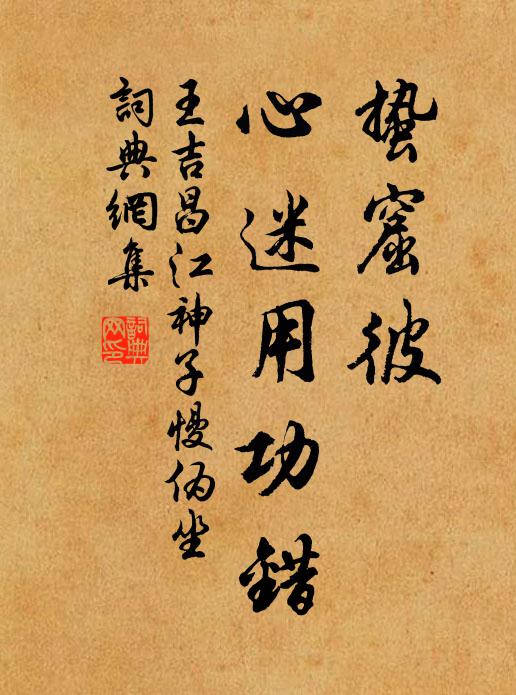 蟄窟彼
心迷用功錯
王吉昌江神子慢偽坐
詞典網集
詞典網印